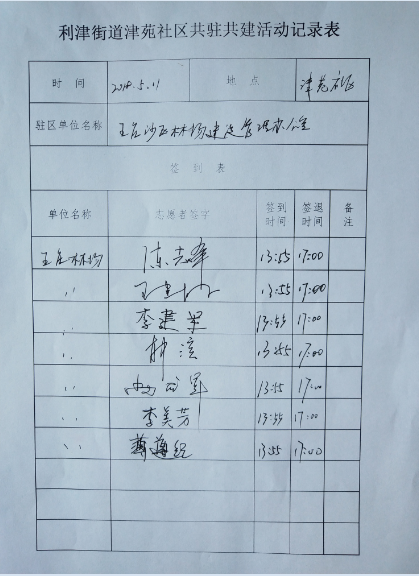 利津街道津苑社区共驻共建活动记录表
时间 2018.5.11 地点 津苑社区
驻区单位名称 王庄沙区林场建设管理办公室
签到表
单位名称 志愿者签字 签到时间 签退时间 备注
王庄林场 陈志峰 13:55 17:00
〃 13:55 17:00
〃 李建军 13:55 17:00
〃 13:55 17:00
〃 13:55 17:00
〃 李美芳 13:55 17:00
〃 13:55 17:00